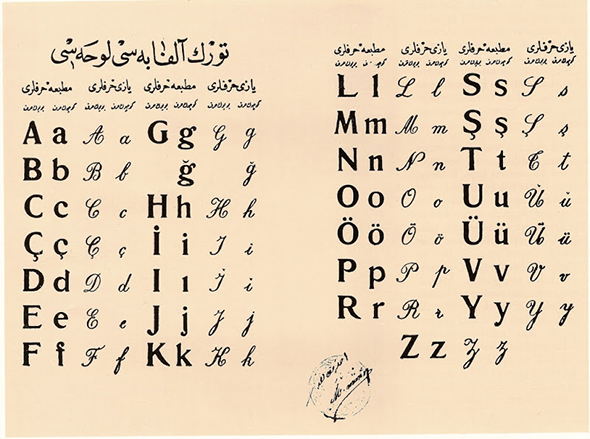 تورك آلفابه‌سی لوحه‌سی
مطبعه حرفلری یازی حرفلری مطبعه حرفلری یازی حرفلری
A a A a G g G g
B b B b ğ ğ
C c C c H h H h
Ç ç Ç ç İ i I i
D d D d I ı İ i
E e E e J j J j
F f F f K k K k
مطبعه حرفلری یازی حرفلری مطبعه حرفلری یازی حرفلری
L l L l S s S s
M m M m Ş ş Ş ş
N n N n T t T t
O o O o U u U u
Ö ö Ö ö Ü ü Ü ü
P p P p V v V v
R r R r Y y Y y
Z z Z z